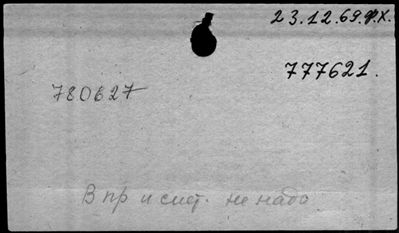 23.12.69.Ф.Х.
777621.
780627
В пр и сист. не надо